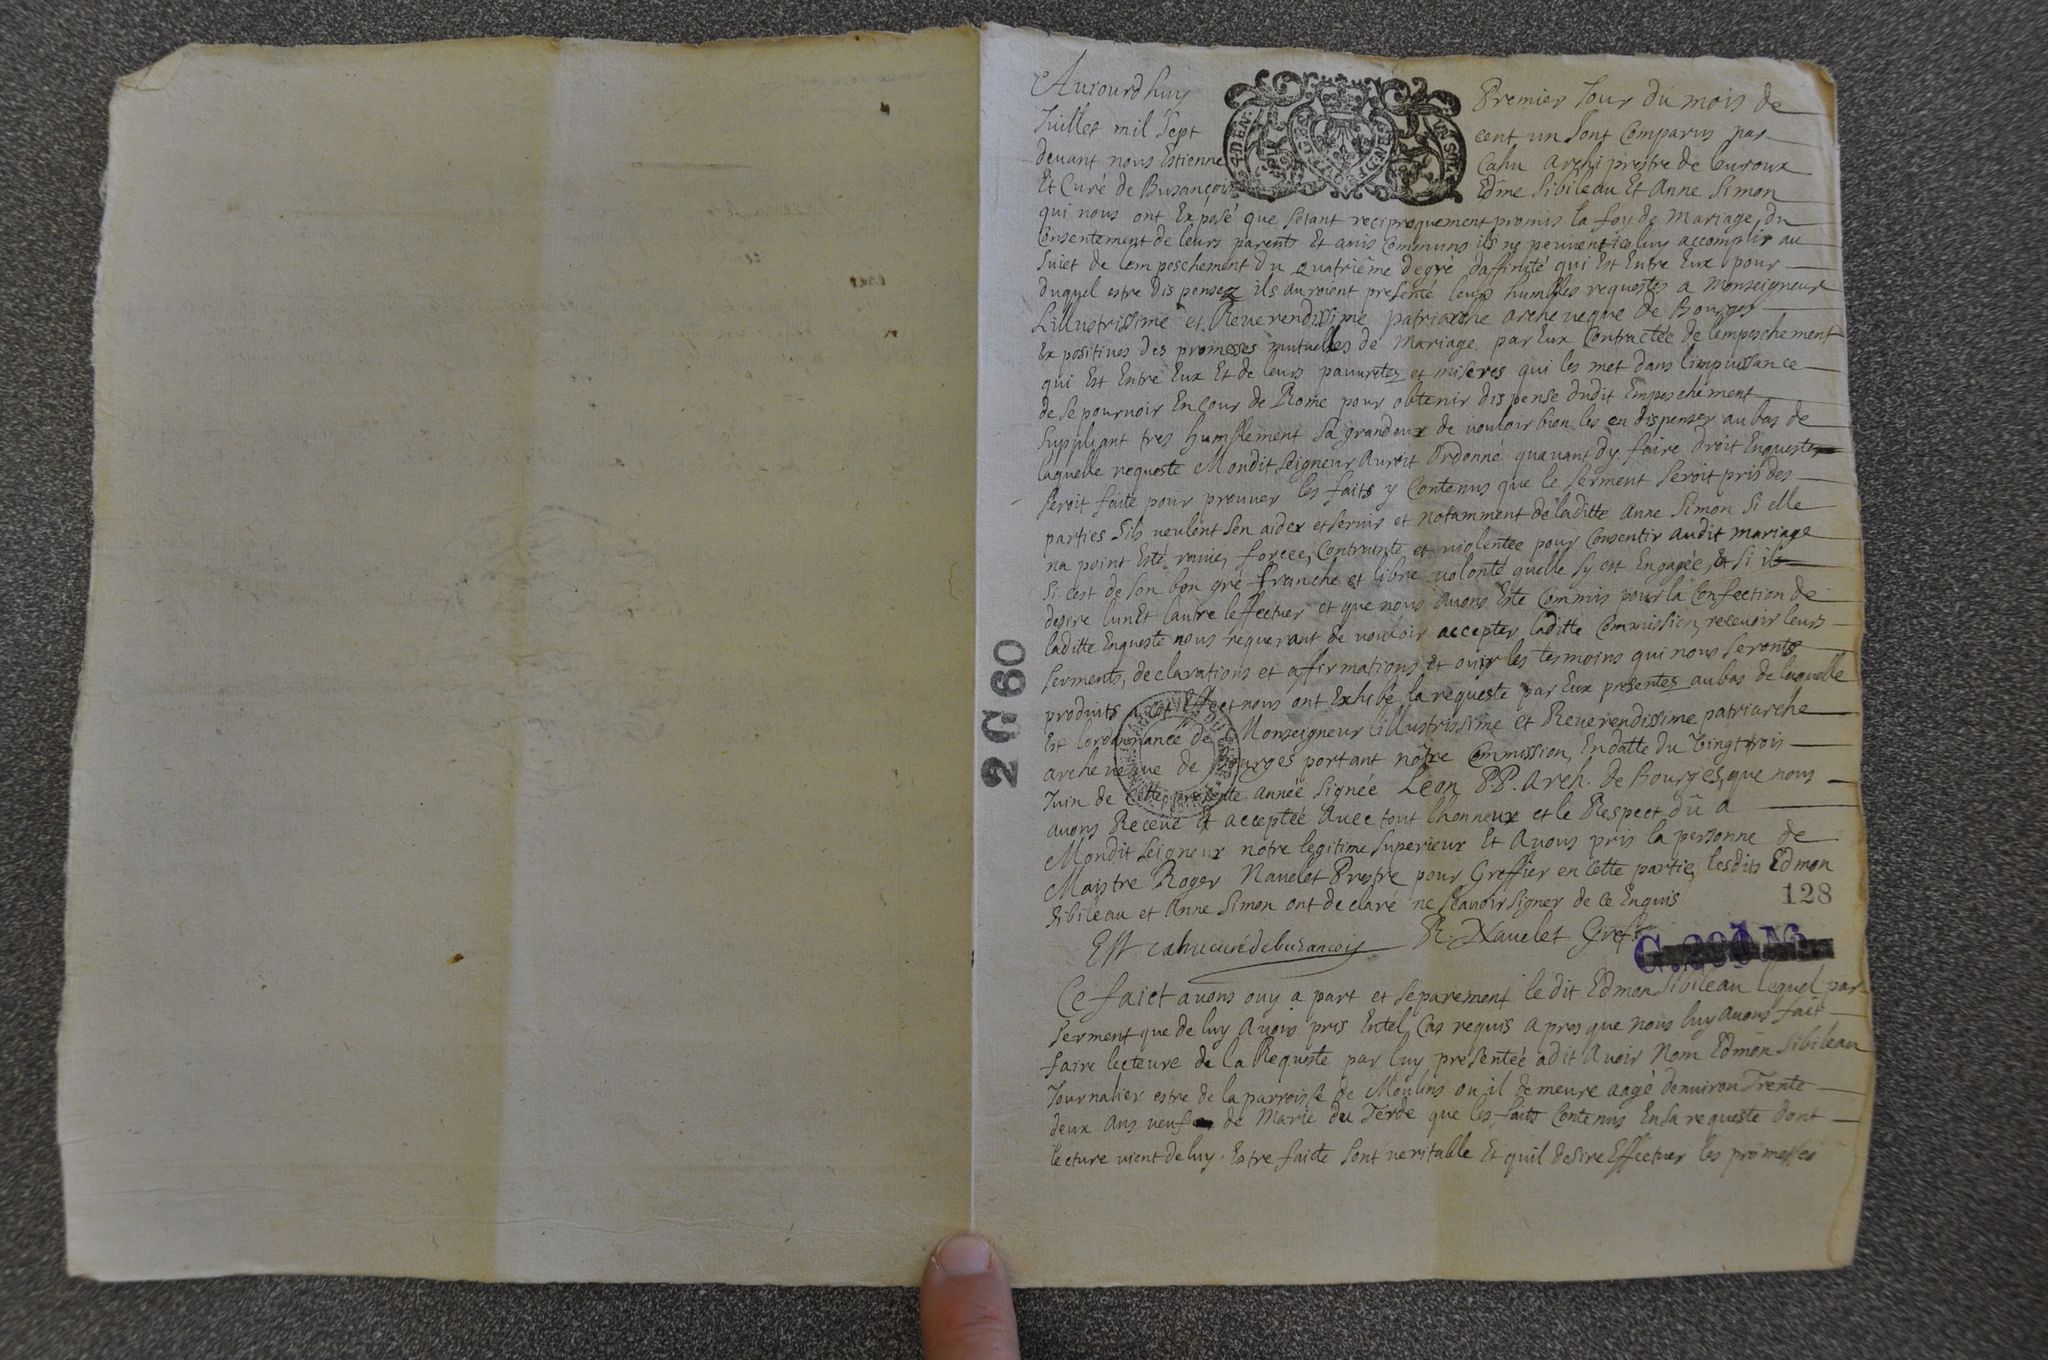 Aujourdhuy Premier Jour du mois de
Juillet mil sept cent un sont Comparus par
devant nous Estienne Cahu Archiprestre de leuroux
Et Curé de Busançois Edme Sibileau Et Anne Simon
qui nous ont Exposé que setant reciproquement promis la foy de Mariage, du
Consentement de leurs parents Et amis Communs ils ne peuvent iceluy accomplir au
Suiet de lemposchement du quatriême degré daffinité qui Est Entre Eux pour
duquel estre dispensez ils auroient presenté leurs humbles requestes a Monseigneur
Lillustrissime et Reuerendissime patriarche archeueque de Bourges
Expositives des promesses mutuelles de Mariage par Eux Contractée de lemposchement
qui Est Entre Eux Et de leurs pauuretez et miseres qui les met dans limpuissance
de se pouruoir En Cour de Rome pour obtenir dispense dudit Emposchement
Suppliant tres humblement sa grandeur de vouloir bien les en dispenser au bas de
laquelle requeste Mondit Seigneur auroit Ordonné quavant dy faire droit Enqueste
seroit faite pour prouuer les faits y Contenus que le serment seroit pris des
parties sils veulent sen aider et seruir et notamment de laditte Anne Simon si elle
na point Esté rauie, forcee, Contrainte et violentée pour Consentir audit mariage
si cest de son bon gré franche et libre volonté quelle sy est Engagée, Et si ils
desire lun Et lautre leffectuer et que nous avons Esté Commis pour la Confection de
laditte Enqueste nous requerant de vouloir accepter laditte Commission, receuoir leurs
serments, declarations et affirmations et ouir les tesmoins qui nous seronts
produits a cet Effect nous ont Exhibé la requeste par Eux presentez au bas de laquelle
Est lordonnance de Monseigneur lillustrissime et Reuerendissime patriarche
archeueque de Bourges portant nôtre Commission, En datte du Vingt trois
Juin de Cette presente année signée Leon PP. Arch. de Bourges, que nous
auons Receue et acceptée Auec tout lhonneur et le Respect dû a
Mondit Seigneur notre legitime superieur Et Auons pris la personne de
Maistre Roger Nauelet Prestre pour Greffier en Cette partie, lesdits Edmon
Sibileau et Anne Simon ont declaré ne scauoir signer de ce Enquis
128
Est. cahu curé de busancois R. Nauelet Greff
2 G 60
Ce faict auons ouy a part et separement le dit Edmon Sibileau lequel par
serment que de luy Auons pris En tel Cas requis apres que nous luy auons fait
faire lecteure de la Requeste par luy presentée a dit Auoir Nom Edmon Sibileau
Journalier estre de la parroisse de Moulins ou il demeure aagé denuiron Trente
deux Ans veuf de Marie du Terde que les faits Contenus En sa requeste dont
lecture vient de luy Estre faicte sont veritable Et quil desire Effectuer les promesses